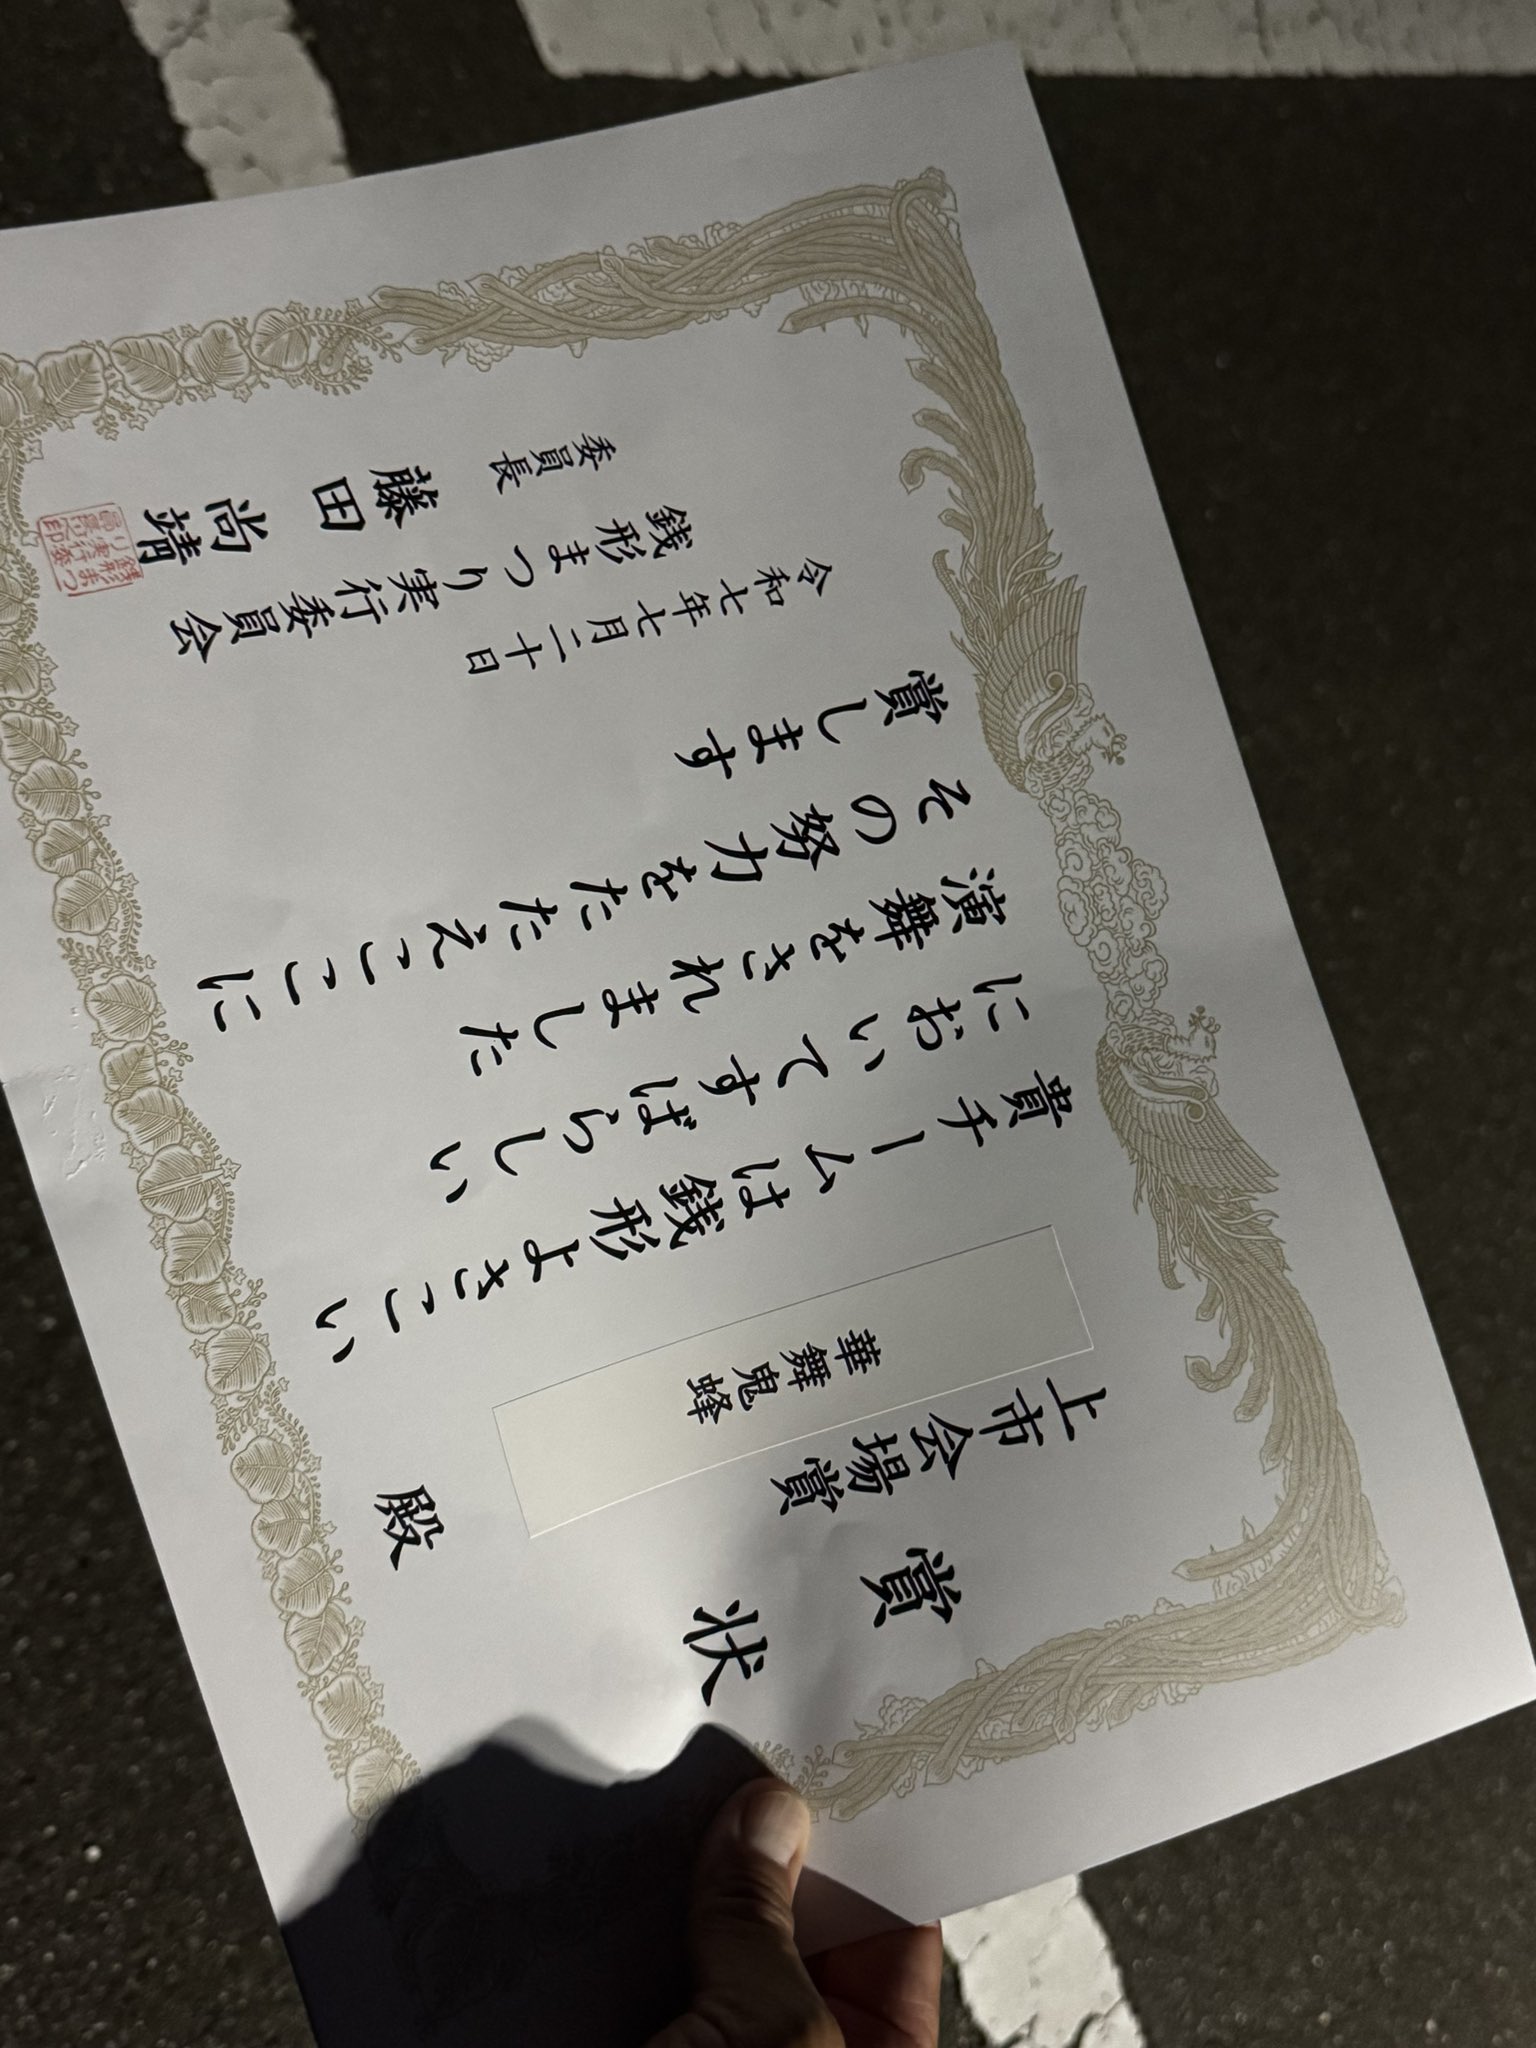 賞状
上市会場賞
華舞鬼蜂
殿
貴チームは銭形よさこい
においてすばらしい
演舞をされました
その努力をたたえここに
賞します
令和七年七月二十日
銭形まつり実行委員会
委員長 藤田尚靖
銭形まつ
り実行委
員会印